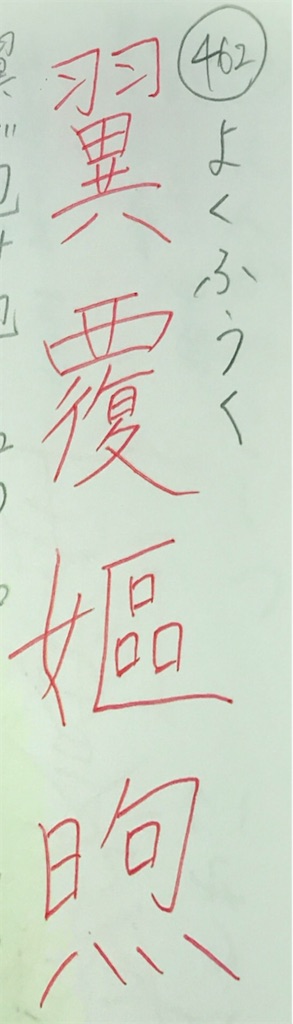 462
よくふうく
翼覆嫗煦